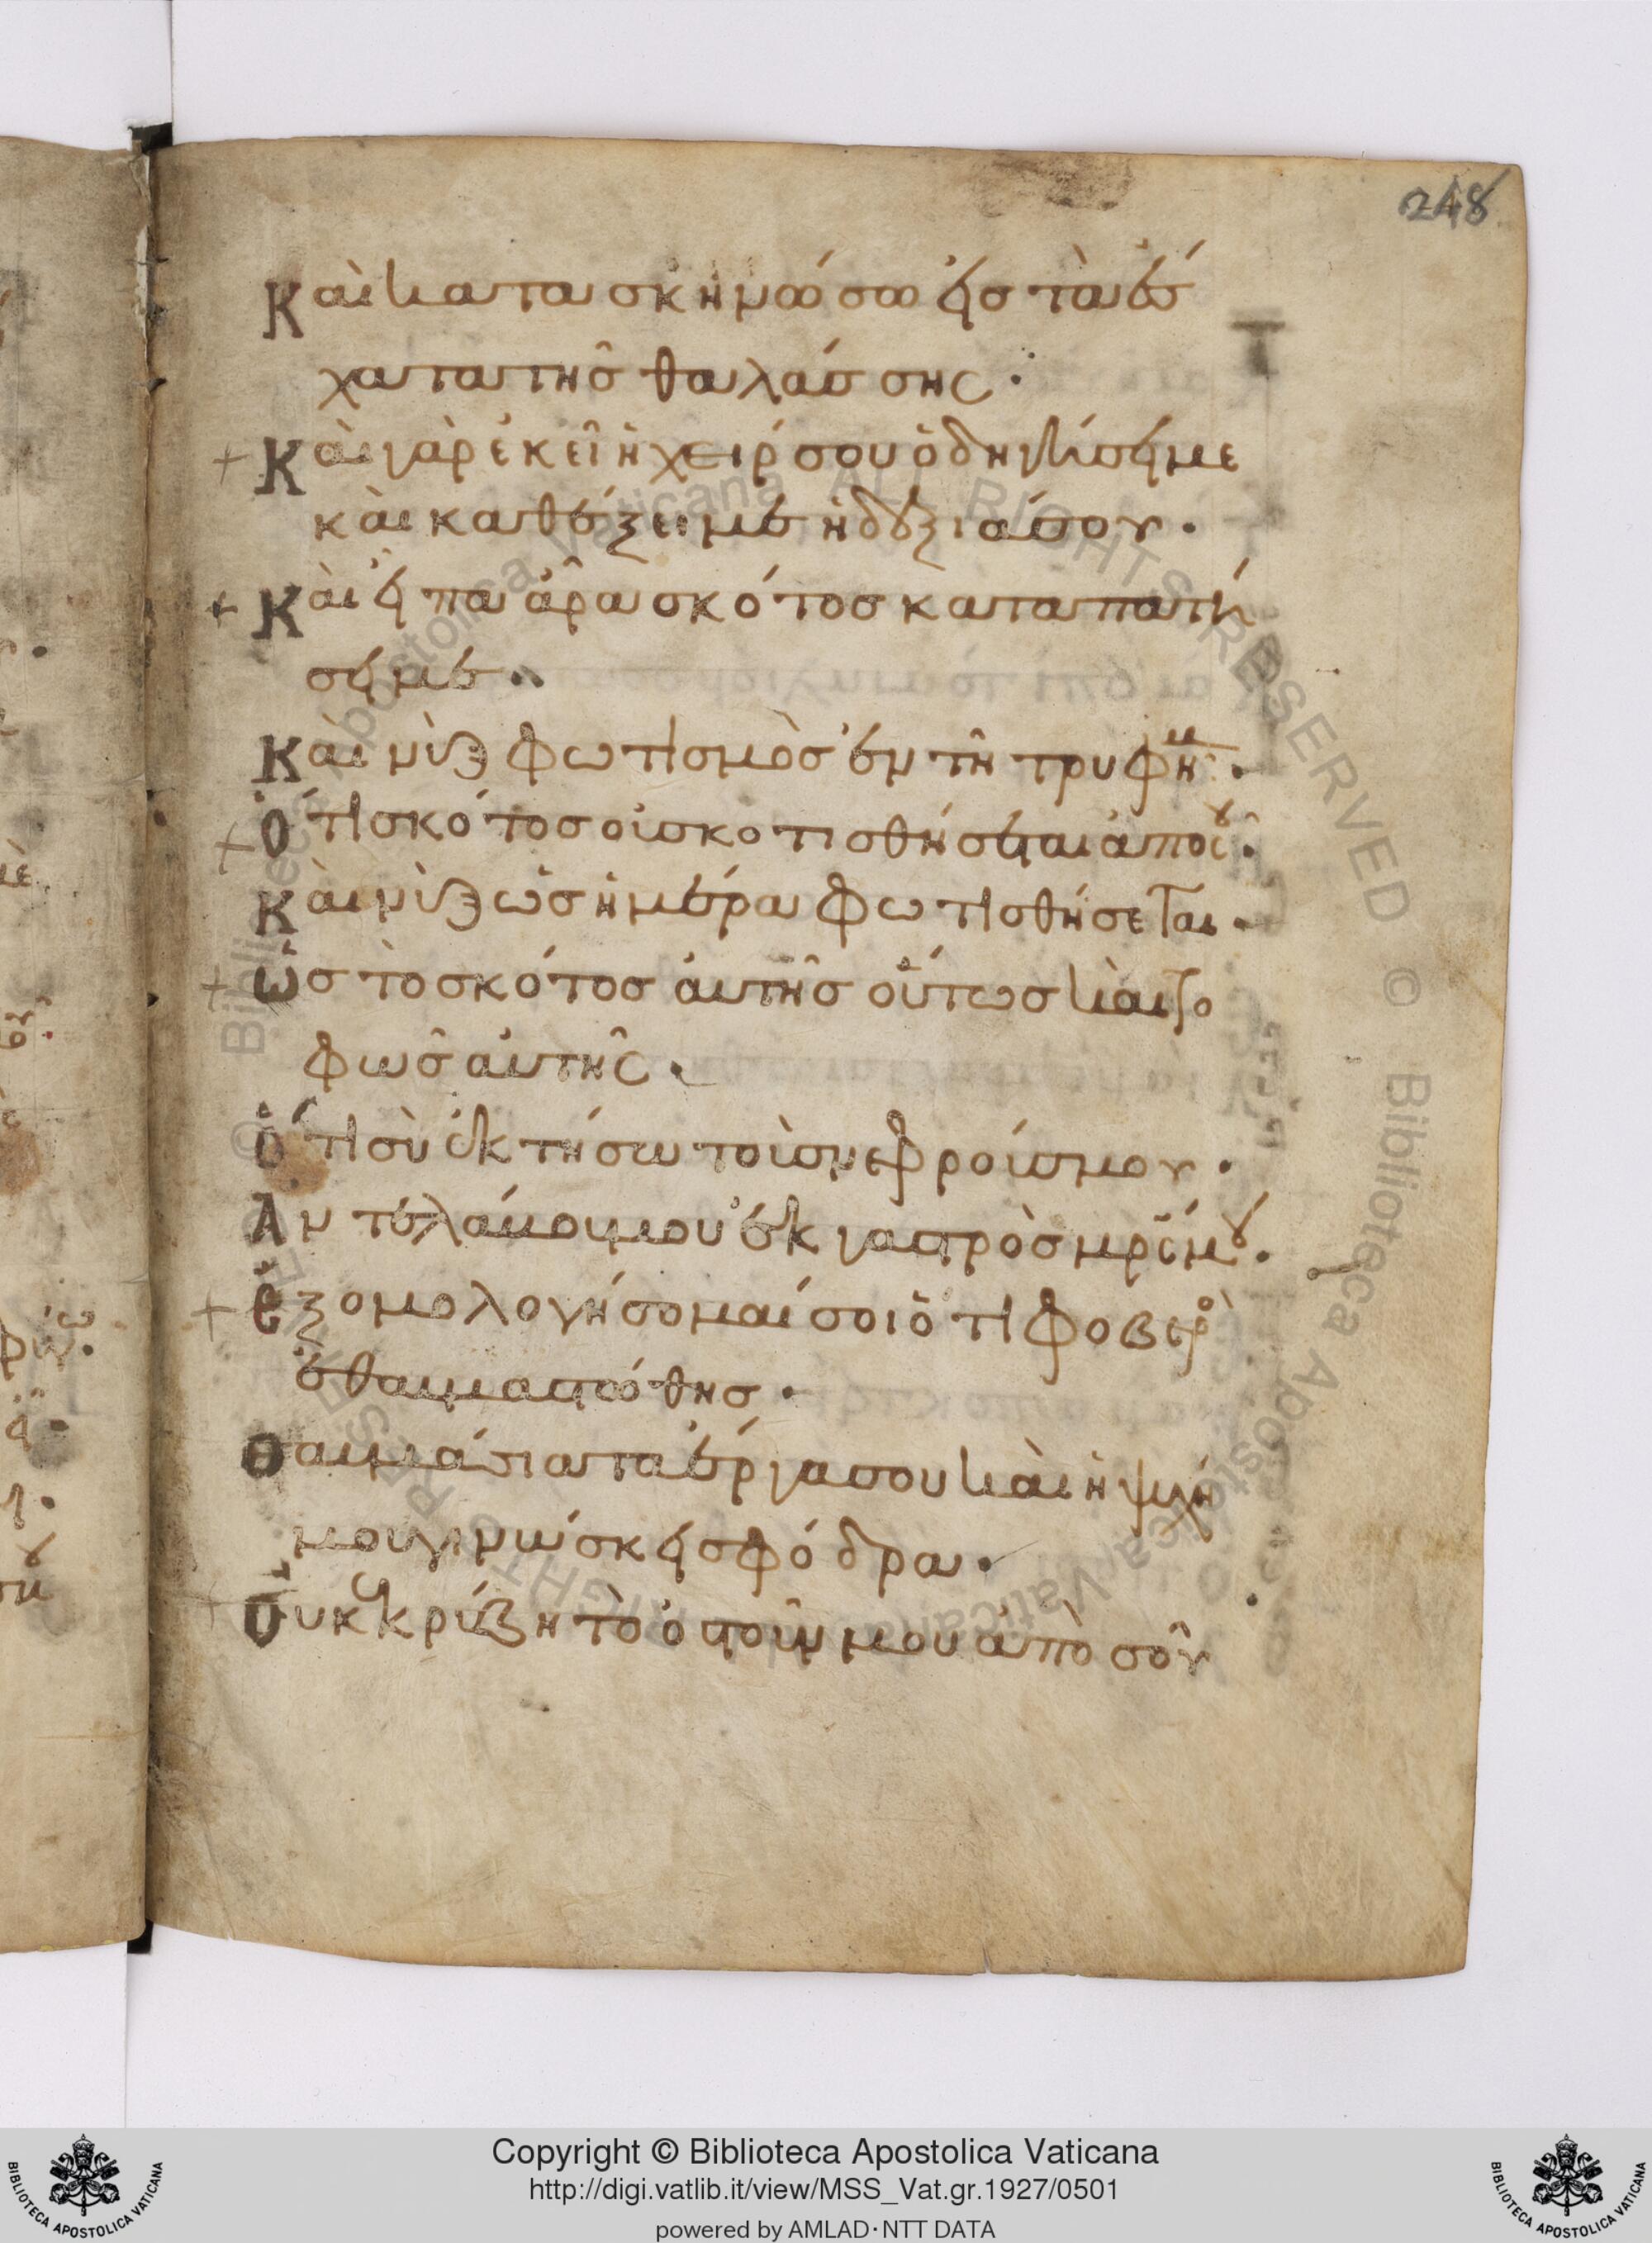 248
Καὶ κατασκηνώσω εἰς τὰ ἔσ
χατα τῆς θαλάσσης·
Καὶ γὰρ ἐκεῖ ἡ χείρ σου ὁδηγήσει με
καὶ καθέξει με ἡ δεξιά σου·
Καὶ εἶπα ἆρα σκότος καταπατή
σει με··
Καὶ νὺξ φωτισμὸς ἐν τῇ τρυφῇ μ·
Ὅτι σκότος οὐ σκοτισθήσεται ἀπὸ σοῦ·
Καὶ νὺξ ὡς ἡμέρα φωτισθήσεται·
Ὡς τὸ σκότος αὐτῆς οὕτως καὶ το
φῶς αὐτῆς·
Ὅτι σὺ ἐκτήσω τοὺς νεφρούς μου·
Ἀντελάβου μου ἐκ γαστρὸς μρς μου·
Ἐξομολογήσομαί σοι ὅτι φοβερὸ
ἐθαυμαστώθης·
Θαυμάσια τα ἔργα σου καὶ ἡ ψυχή
μου γινώσκει σφόδρα·
Οὐκ ἐκρύβη τὸ ὀστοῦν μου ἀπὸ σοῦ
Copyright © Biblioteca Apostolica Vaticana
http://digi.vatlib.it/view/MSS_Vat.gr.1927/0501
powered by AMLAD·NTT DATA
BIBLIOTECA APOSTOLICA VATICANA
BIBLIOTECA APOSTOLICA VATICANA